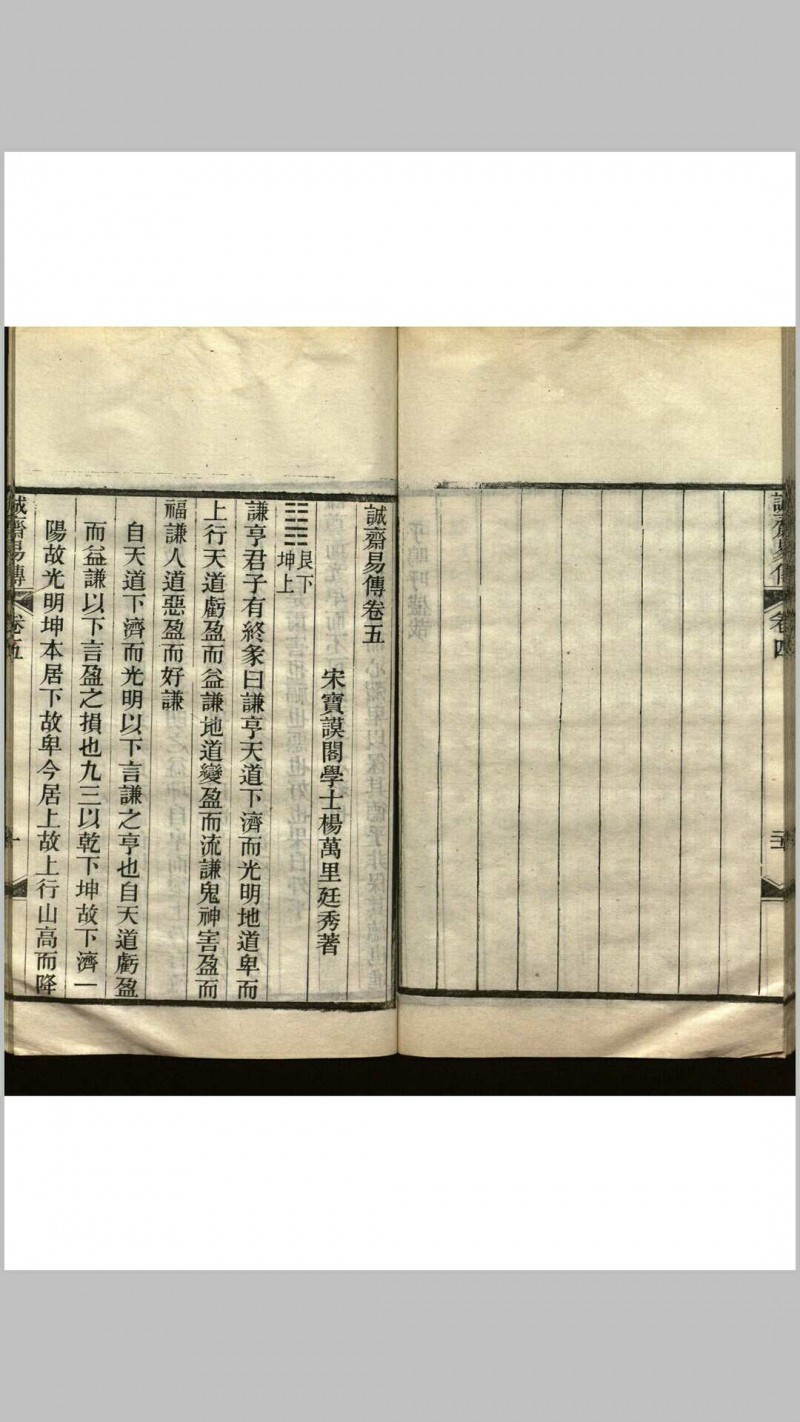 誠齋易傳
卷四
二十
誠齋易傳卷五
宋寶謨閣學士楊萬里廷秀著
艮下
坤上
謙亨君子有終彖曰謙亨天道下濟而光明地道卑而
上行天道虧盈而益謙地道變盈而流謙鬼神害盈而
福謙人道惡盈而好謙
自天道下濟而光明以下言謙之亨也自天道虧盈
而益謙以下言盈之損也九三以乾下坤故下濟一
陽故光明坤本居下故卑今居上故上行山高而降
誠齋易傳
卷五
一